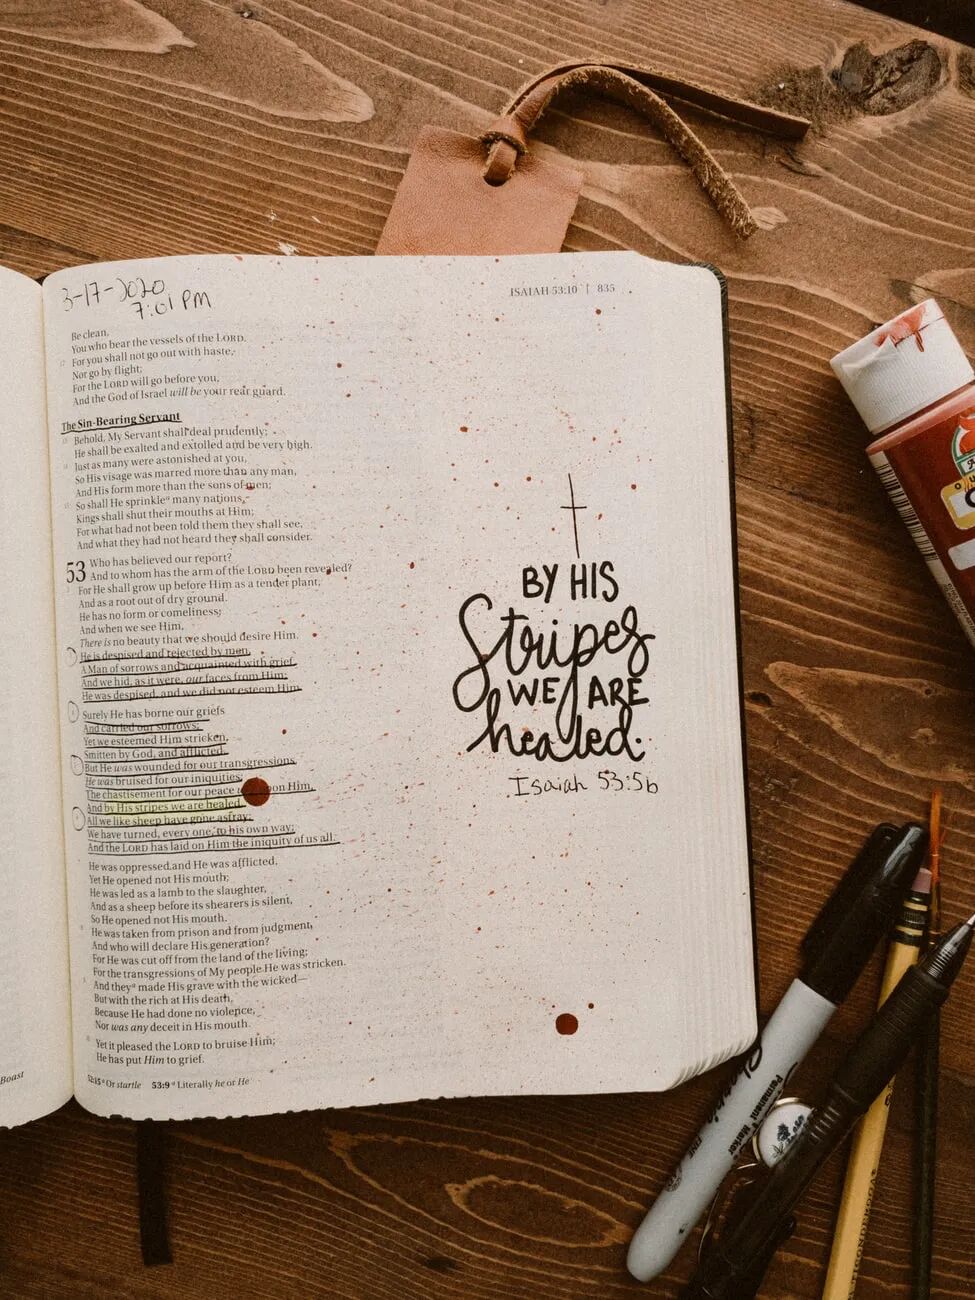 3-17-2020
7:01 PM
ISAIAH 53:10 | 835
Be clean,
You who bear the vessels of the LORD.
12 For you shall not go out with haste,
Nor go by flight;
For the LORD will go before you,
And the God of Israel will be your rear guard.
The Sin-Bearing Servant
13 Behold, My Servant shall deal prudently;
He shall be exalted and extolled and be very high.
14 Just as many were astonished at you,
So His visage was marred more than any man,
And His form more than the sons of men;
15 So shall He sprinkleᵃ many nations,
Kings shall shut their mouths at Him;
For what had not been told them they shall see,
And what they had not heard they shall consider.
53 Who has believed our report?
And to whom has the arm of the LORD been revealed?
2 For He shall grow up before Him as a tender plant,
And as a root out of dry ground.
He has no form or comeliness;
And when we see Him,
There is no beauty that we should desire Him.
3 He is despised and rejected by men,
A Man of sorrows and acquainted with grief.
And we hid, as it were, our faces from Him;
He was despised, and we did not esteem Him.
4 Surely He has borne our griefs
And carried our sorrows;
Yet we esteemed Him stricken,
Smitten by God, and afflicted.
5 But He was wounded for our transgressions,
He was bruised for our iniquities;
The chastisement for our peace was upon Him,
And by His stripes we are healed.
6 All we like sheep have gone astray;
We have turned, every one, to his own way;
And the LORD has laid on Him the iniquity of us all.
He was oppressed and He was afflicted,
Yet He opened not His mouth;
He was led as a lamb to the slaughter,
And as a sheep before its shearers is silent,
So He opened not His mouth.
8 He was taken from prison and from judgment,
And who will declare His generation?
For He was cut off from the land of the living;
For the transgressions of My people He was stricken.
9 And theyᵃ made His grave with the wicked—
But with the rich at His death,
Because He had done no violence,
Nor was any deceit in His mouth.
10 Yet it pleased the LORD to bruise Him;
He has put Him to grief.
52:15 ᵃ Or startle 53:9 ᵃ Literally he or He
Boast
BY HIS
Stripes
WE ARE
healed.
Isaiah 53:5b
Permanent Marker
TICONDEROGA